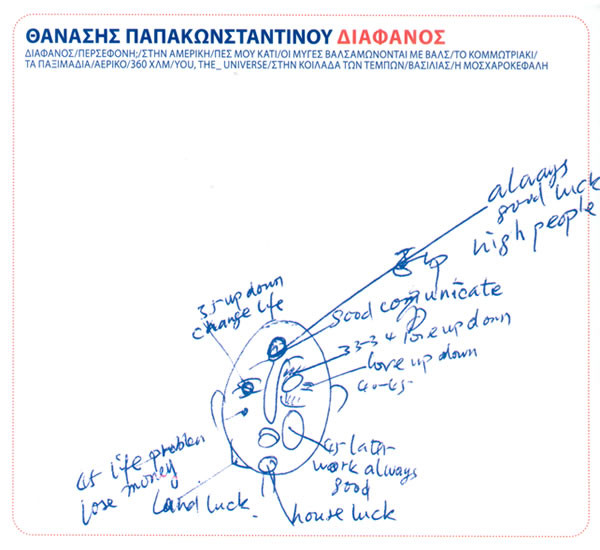 ΘΑΝΑΣΗΣ ΠΑΠΑΚΩΝΣΤΑΝΤΙΝΟΥ ΔΙΑΦΑΝΟΣ
ΔΙΑΦΑΝΟΣ/ΠΕΡΣΕΦΟΝΗ;/ΣΤΗΝ ΑΜΕΡΙΚΗ/ΠΕΣ ΜΟΥ ΚΑΤΙ/ΟΙ ΜΥΓΕΣ ΒΑΛΣΑΜΩΝΟΝΤΑΙ ΜΕ ΒΑΛΣ/ΤΟ ΚΟΜΜΩΤΡΙΑΚΙ/
ΤΑ ΠΑΞΙΜΑΔΙΑ/ΑΕΡΙΚΟ/360 ΧΛΜ/YOU, THE_ UNIVERSE/ΣΤΗΝ ΚΟΙΛΑΔΑ ΤΩΝ ΤΕΜΠΩΝ/ΒΑΣΙΛΙΑΣ/Η ΜΟΣΧΑΡΟΚΕΦΑΛΗ
always
good luck
high people
up
good communicate
35-up down
change life
33-34 love up down
love up down
40-45
45 life problem
lose money
Land luck.
45-later
work always
good
house luck